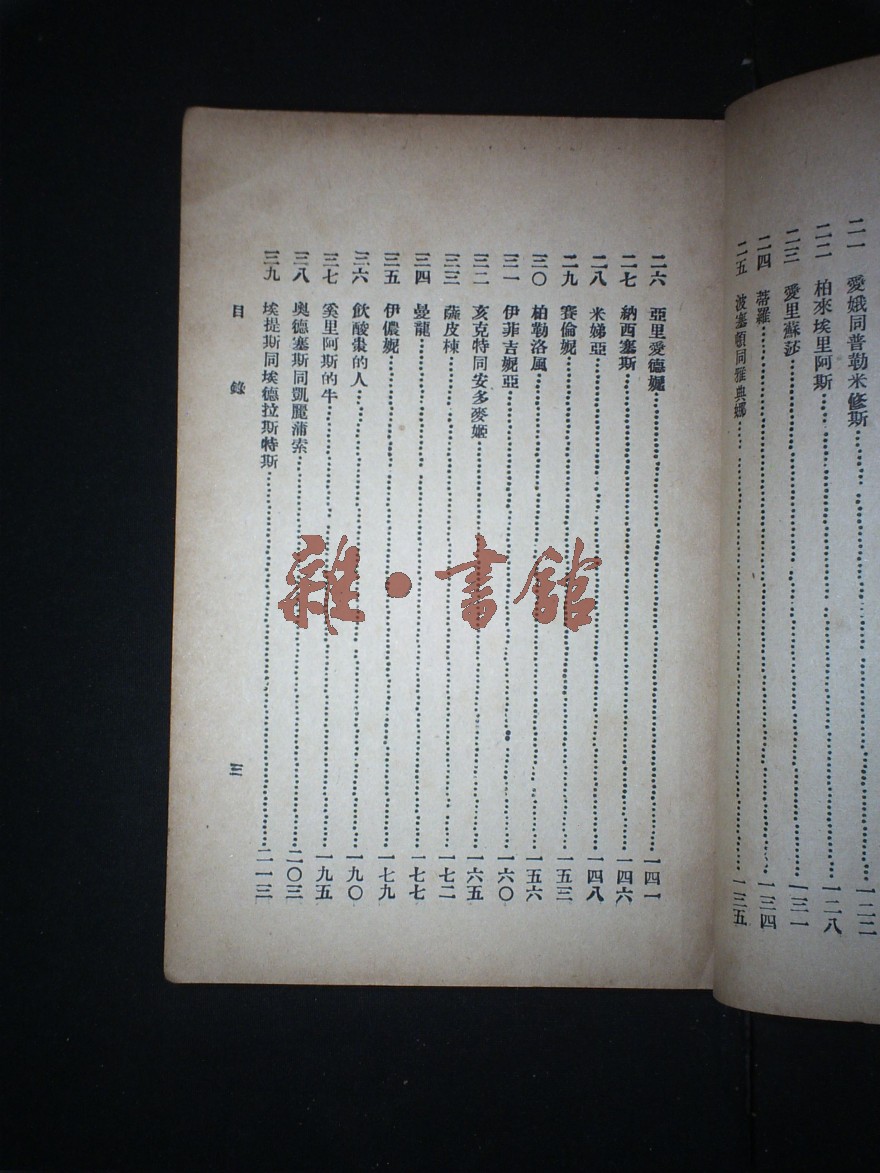 二一 愛娥同普勒米修斯 一二二
二二 柏來埃里阿斯 一二八
二三 愛里蘇莎 一三一
二四 蒂羅 一三四
二五 波塞頓同雅典娜 一三五
二六 亞里愛德妮 一四一
二七 納西塞斯 一四六
二八 米娣亞 一四八
二九 賽倫妮 一五三
三〇 柏勒洛風 一五六
三一 伊菲吉妮亞 一六〇
三二 亥克特同安多麥姬 一六五
三三 薩皮棟 一七二
三四 曼龍 一七七
三五 伊儂妮 一七九
三六 飲酸棗的人 一九〇
三七 奚里阿斯的牛 一九五
三八 奧德塞斯同凱麗蒲索 二〇三
三九 埃提斯同埃德拉斯特斯 二一三
目錄
三
雜·書館